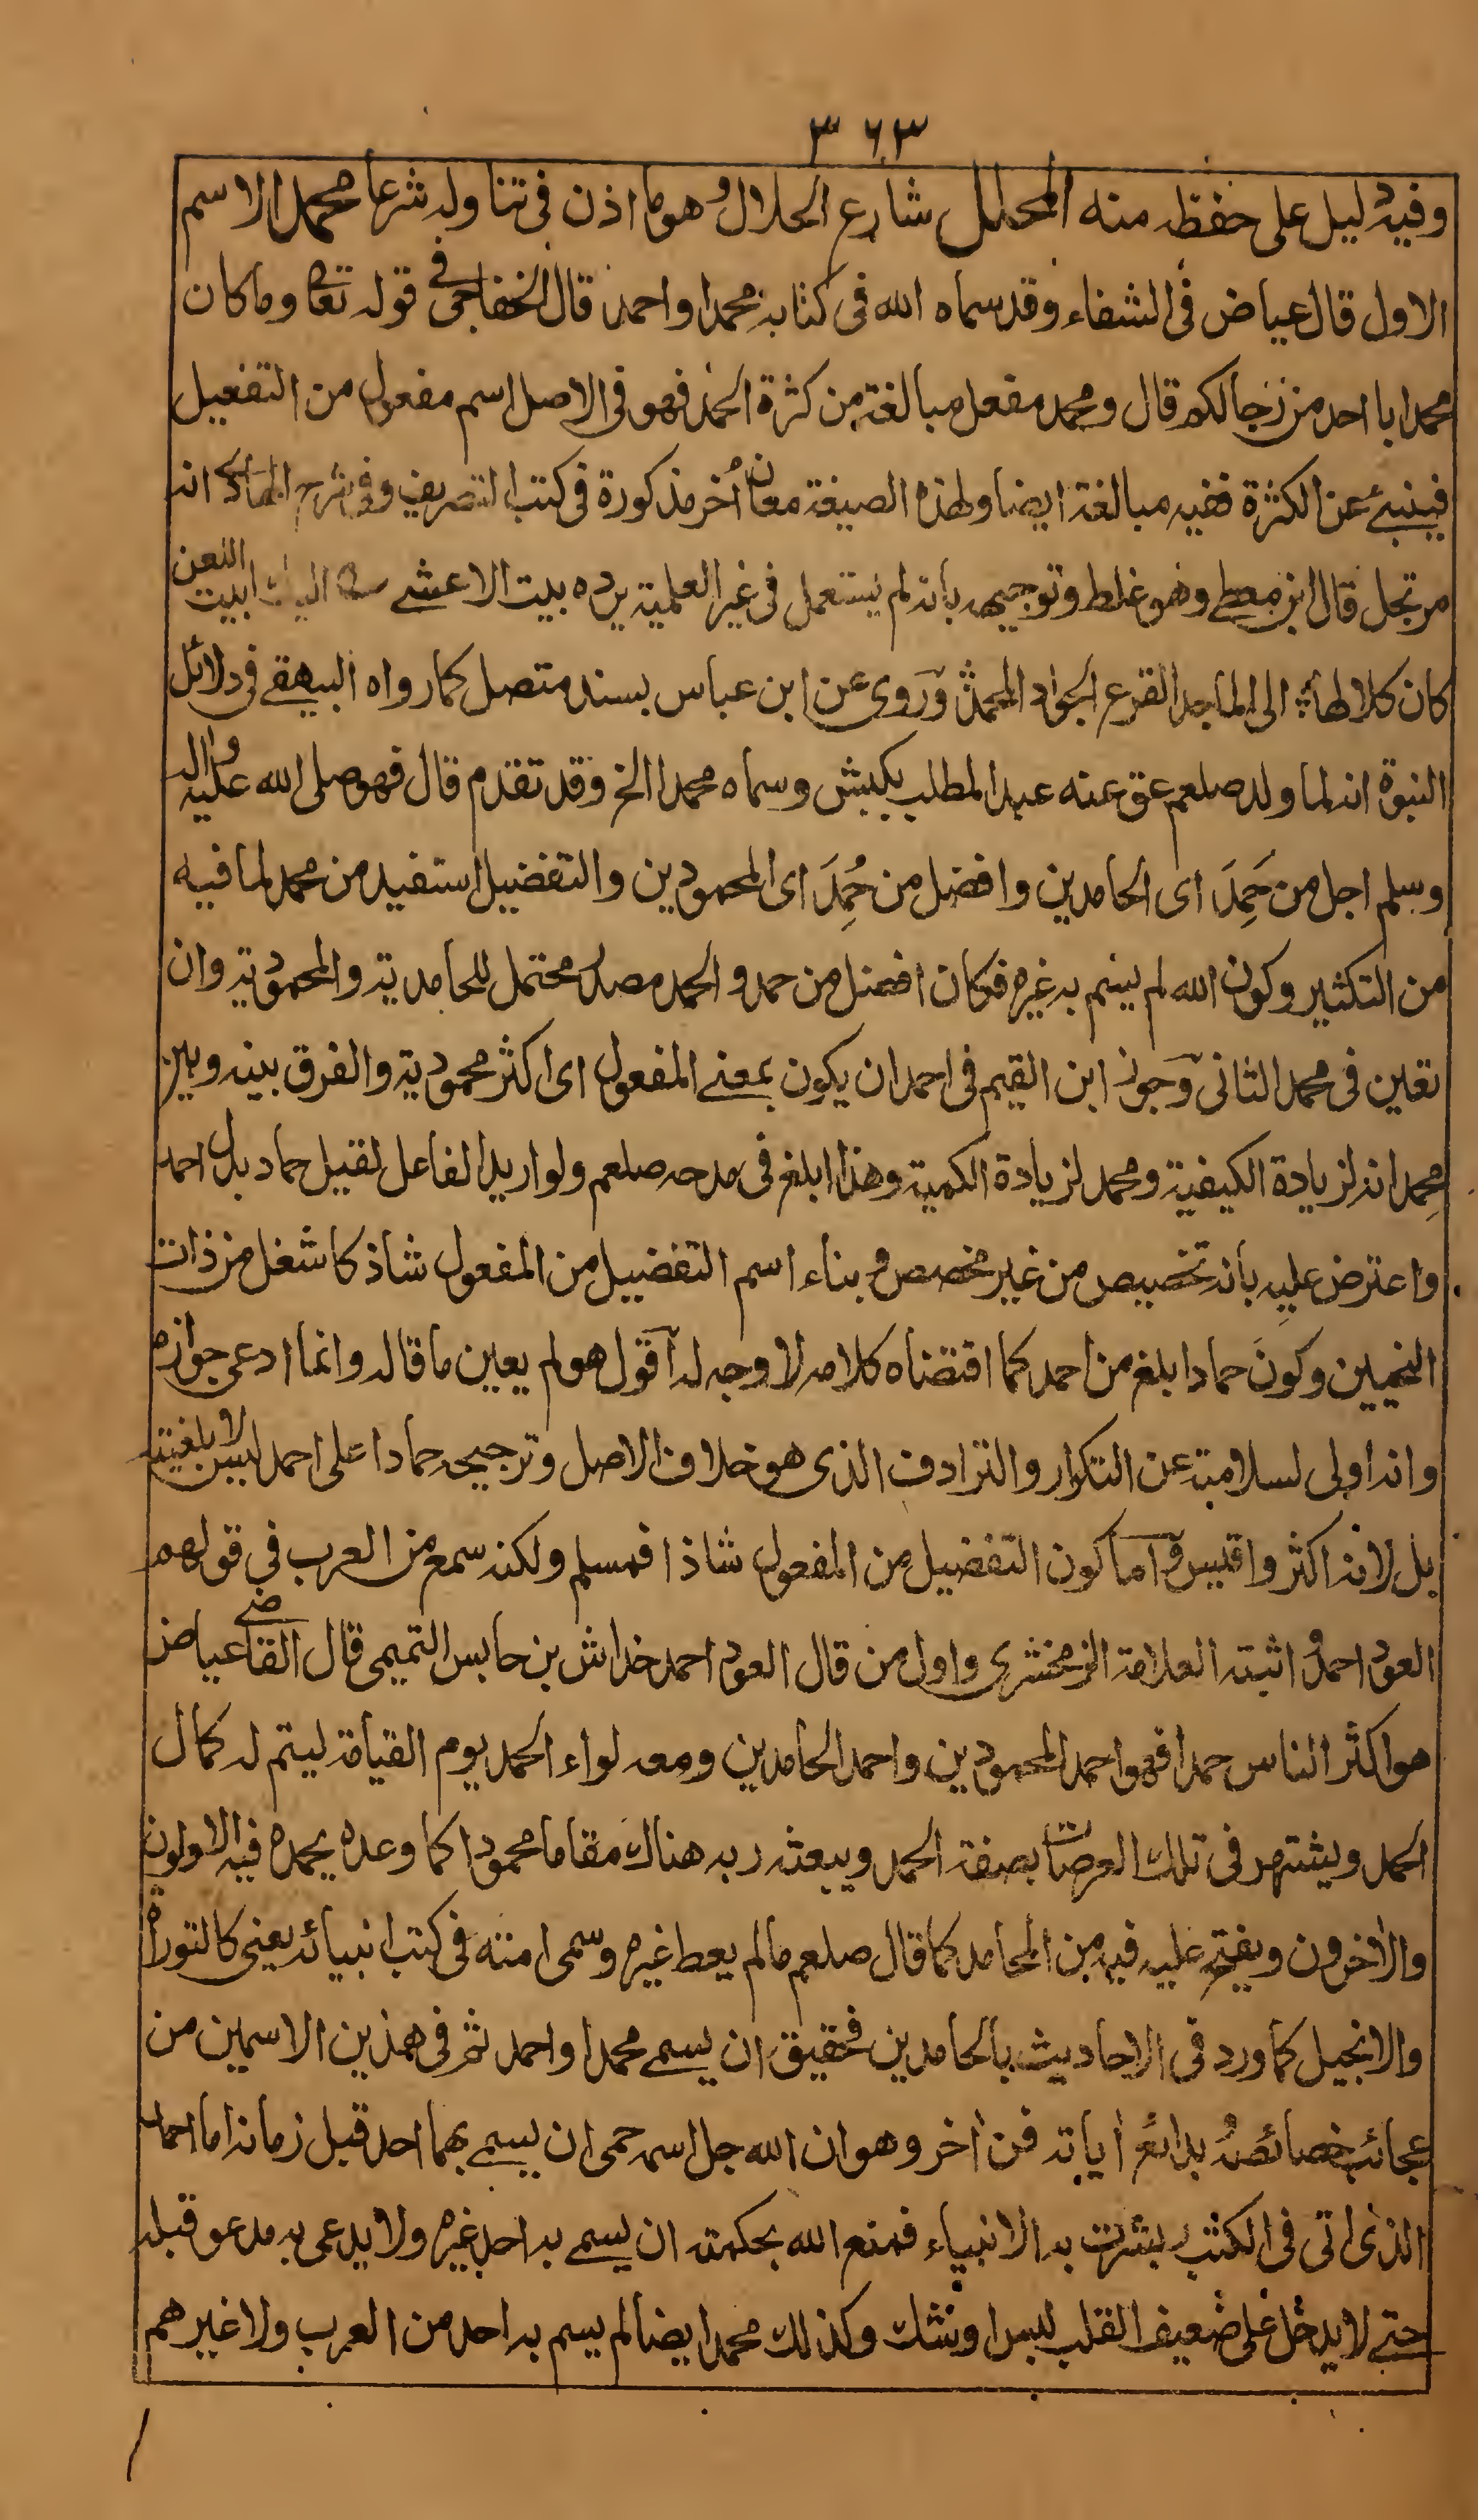 ٣٦٣
وفيه دليل على حفظه منه المحلل شارع الحلال وهو ما اذن فى تناوله شرعا محمد الاسم
الاول قال عياض فى الشفاء وقد سماه الله فى كتابه محمدا واحمد قال الخفاجى فى قوله تعا وما كان
محمد ابا احد من رجالكم قال ومحمد مفعل مبالغة من كثرة الحمد فهو فى الاصل اسم مفعول من التفعيل
فينبئ عن الكثرة ففيه مبالغة ايضا ولهذه الصيغة معان أخر مذكورة فى كتب التصريف وفى شرح انه
مرتجل قال ابن معطى وهو غلط وتوجيهه بأنه لم يستعمل فى غير العلمية يرده بيت الاعشى اليك ابيت اللعن
كان كلالها الى الماجد القرع الجواد المحمد وروى عن ابن عباس بسند متصل كما رواه البيهقى فى دلائل
النبوة انه لما ولد صلعم عق عنه عبد المطلب بكبش وسماه محمدا الخ وقد تقدم قال فهو صلى الله عليه واله
وسلم اجل من حَمِدَ اى الحامدين وافضل من حُمِدَ اى المحمودين والتفضيل استفيد من محمد لما فيه
من التكثير وكون الله لم يسم به غيره فكان افضل من حمد والحمد مصدر محتمل للحامدية والمحمودية وان
تعين فى محمد الثانى وجوز ابن القيم فى احمد ان يكون بمعنى المفعول اى اكثر محمودية والفرق بينه وبين
محمد انه لزيادة الكيفية ومحمد لزيادة الكمية وهذا ابلغ فى مدحه صلعم ولو اريد الفاعل لقيل حماد بدل احمد
واعترض عليه بأنه تخصيص من غير مخصص وبناء اسم التفضيل من المفعول شاذ كاشغل من ذات
النحيين وكون حمادا ابلغ من احمد كما اقتضاه كلامه لا وجه له اقول هو لم يعين ما قاله وانما ادعى جوازه
وانه اولى لسلامته عن التكرار والترادف الذى هو خلاف الاصل وترجيحه حمادا على احمد ليس لابلغيته
بل لانه اكثر واقيس واما كون التفضيل من المفعول شاذا فمسلم ولكنه سمع من العرب فى قولهم
العود احمد واثبته العلامة الزمخشرى واول من قال العود احمد خداش بن حابس التميمى قال القاضى عياض
هو اكثر الناس حمدا فهو احمد المحمودين واحمد الحامدين ومعه لواء الحمد يوم القيامة ليتم له كمال
الحمد ويشتهر فى تلك العرصات بصفة الحمد ويبعثه ربه هناك مقاما محمودا كما وعده يحمده فيه الاولون
والاخرون ويفتح عليه فيه من المحامد كما قال صلعم ما لم يعط غيره وسمى امته فى كتب انبيائه يعنى كالتوراة
والانجيل كما ورد فى الاحاديث بالحامدين فحقيق ان يسمى محمدا واحمد ثم فى هذين الاسمين من
عجائب خصائصه وبدائع أياته فن أخر وهو ان الله جل اسمه حمى ان يسمى بهما احد قبل زمانه اما احمد
الذى اتى فى الكتب وبشرت به الانبياء فمنع الله بحكمته ان يسمى به احد غيره ولا يدعى به مدعو قبله
حتى لا يدخل على ضعيف القلب لبس او شك وكذلك محمد ايضا لم يسم به احد من العرب ولا غيرهم